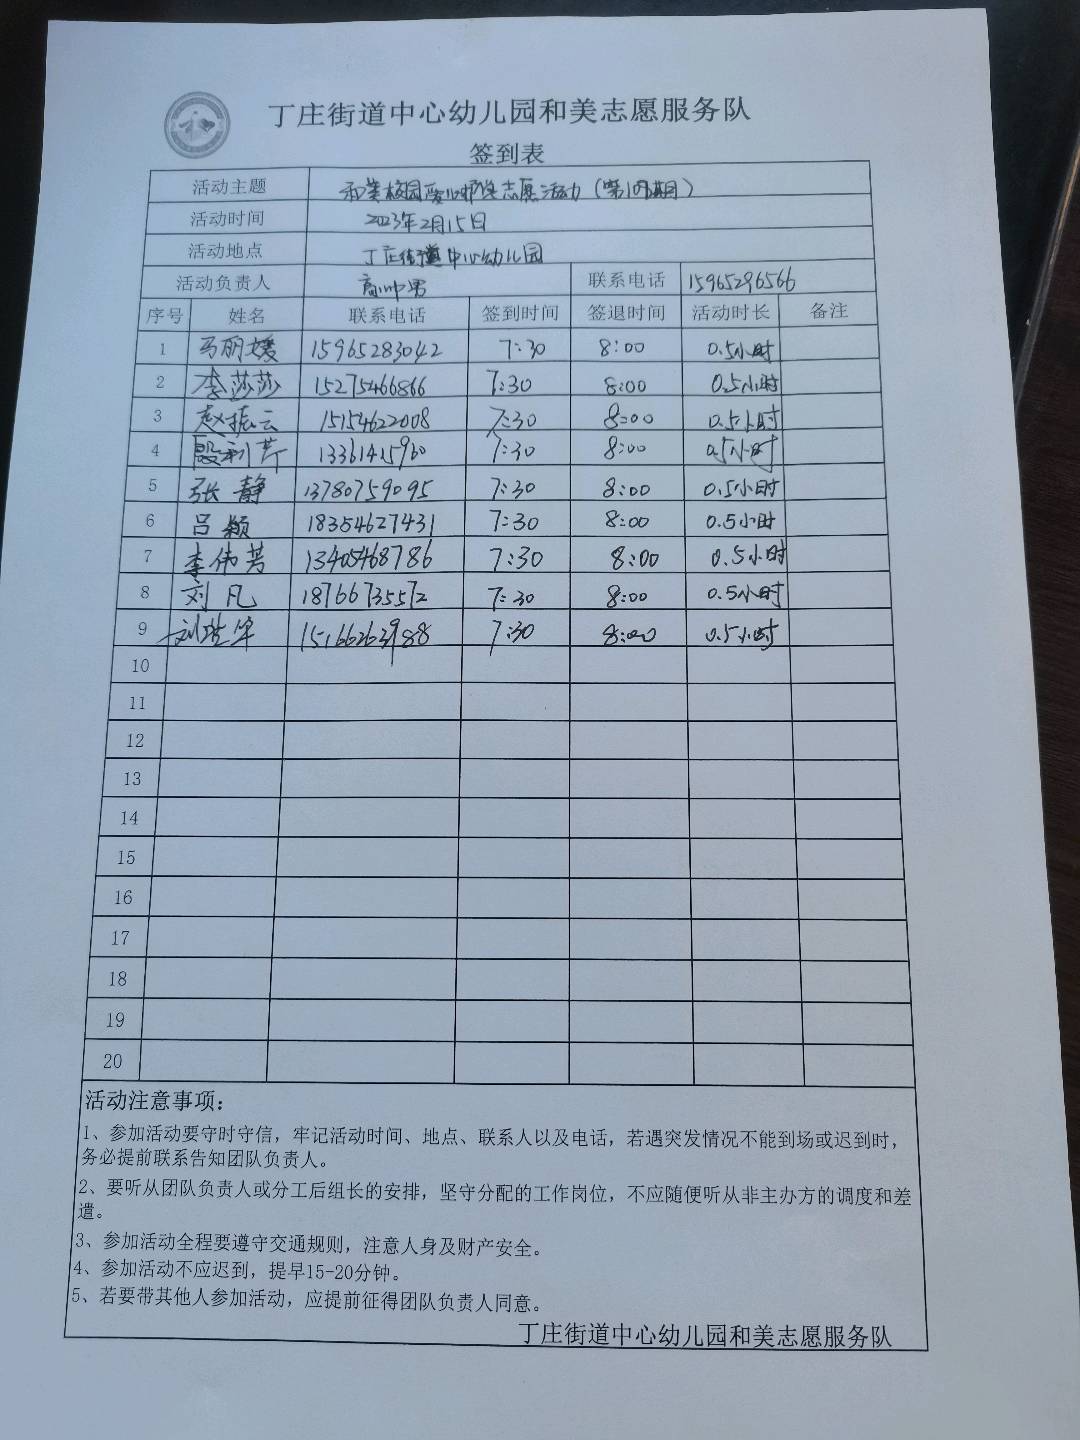 丁庄街道中心幼儿园和美志愿服务队
签到表
活动主题 和美校园爱心护学志愿活动(第109期)
活动时间 2023年2月15日
活动地点 丁庄街道中心幼儿园
活动负责人 高帅男 联系电话 15965296566
序号 姓名 联系电话 签到时间 签退时间 活动时长 备注
1 马丽媛 15965283042 7:30 8:00 0.5小时
2 李莎莎 15275466866 7:30 8:00 0.5小时
3 赵振云 15154622008 7:30 8:00 0.5小时
4 殷利芹 13361415960 7:30 8:00 0.5小时
5 张静 13780759095 7:30 8:00 0.5小时
6 吕颖 18354627431 7:30 8:00 0.5小时
7 李伟芳 13405468786 7:30 8:00 0.5小时
8 刘凡 18766735572 7:30 8:00 0.5小时
9 刘 华 15166263988 7:30 8:00 0.5小时
10
11
12
13
14
15
16
17
18
19
20
活动注意事项:
1、参加活动要守时守信,牢记活动时间、地点、联系人以及电话,若遇突发情况不能到场或迟到时,
务必提前联系告知团队负责人。
2、要听从团队负责人或分工后组长的安排,坚守分配的工作岗位,不应随便听从非主办方的调度和差
遣。
3、参加活动全程要遵守交通规则,注意人身及财产安全。
4、参加活动不应迟到,提早15-20分钟。
5、若要带其他人参加活动,应提前征得团队负责人同意。
丁庄街道中心幼儿园和美志愿服务队